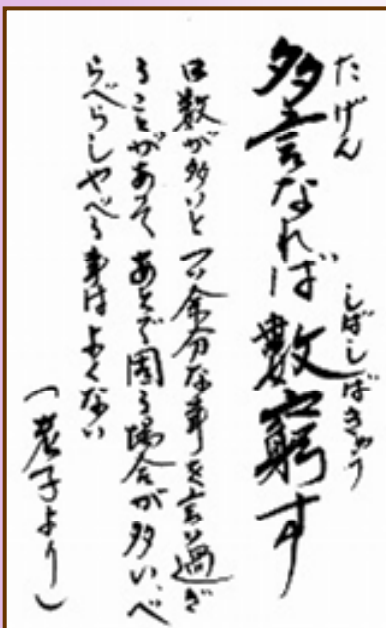 たげん
しばしばきゅう
多言なれば数窮す
口数が多いとつい余分な事を言い過ぎ
ることがあって あとで困る場合が多い、べ
らべらしゃべる事はよくない
(老子より)